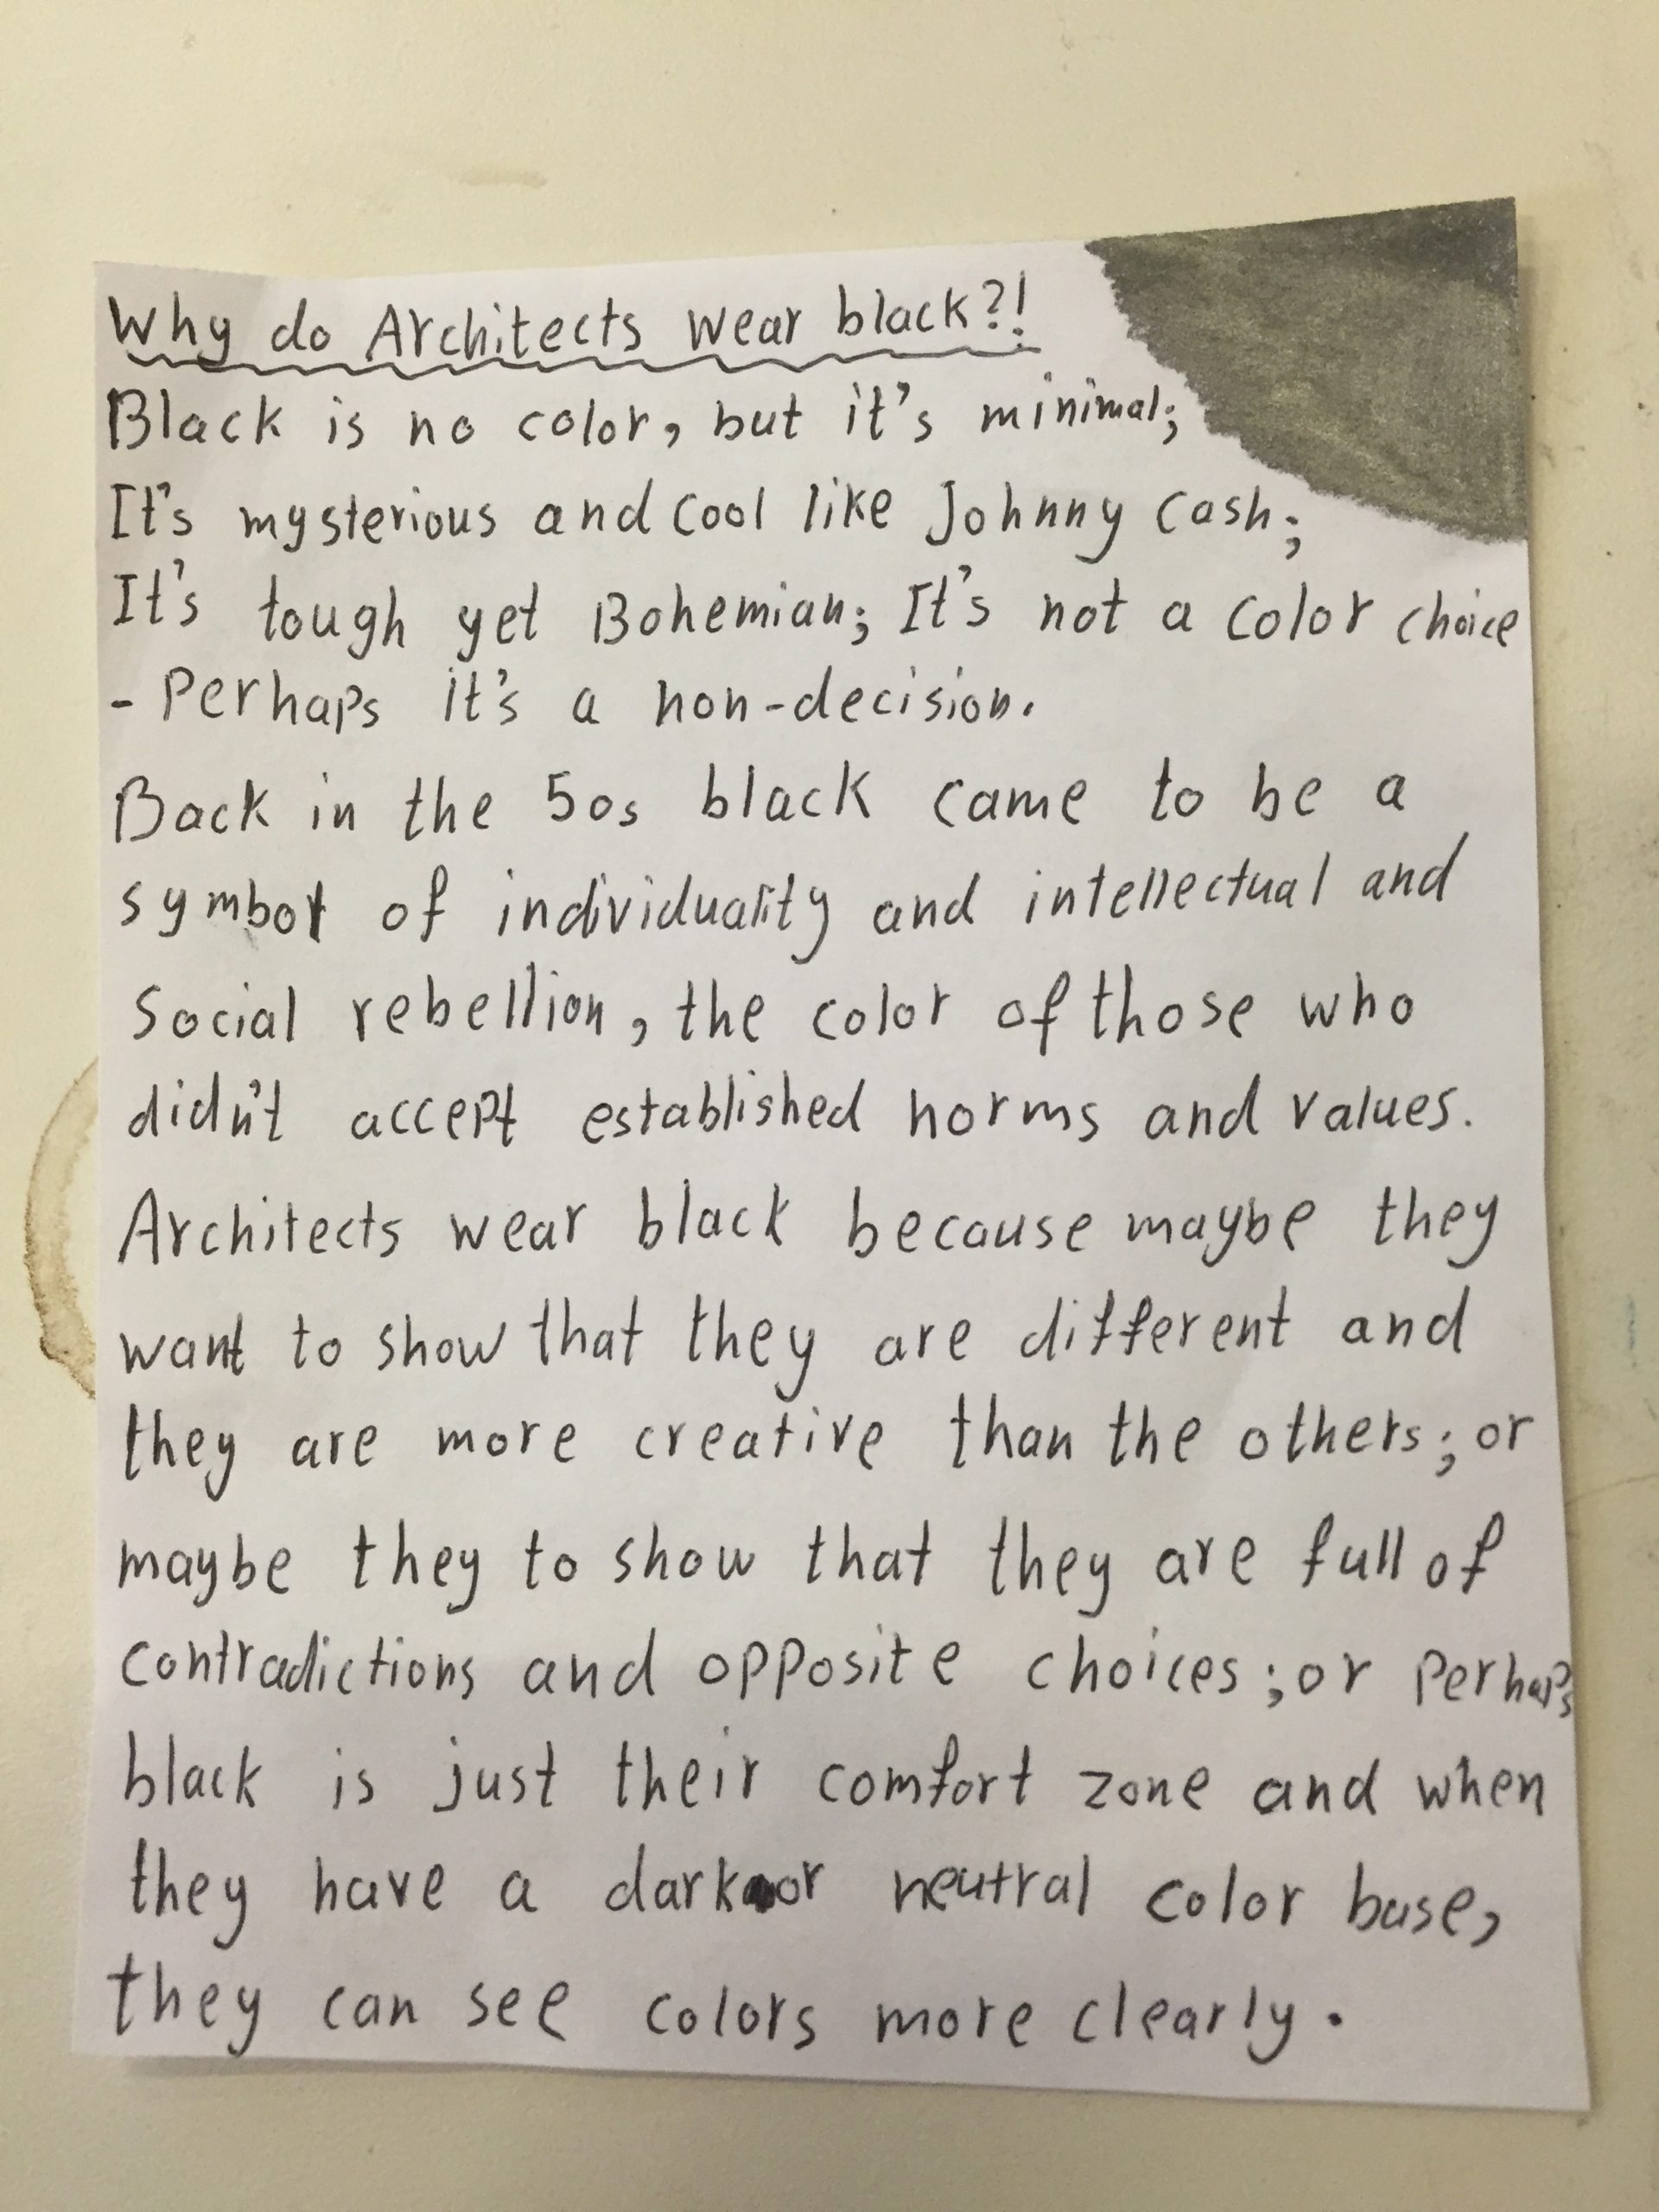 Why do Architects wear black?!
Black is no color, but it's minimal;
It's mysterious and cool like Johnny Cash;
It's tough yet Bohemian; It's not a color choice
- Perhaps it's a non-decision.
Back in the 50s black came to be a
symbol of individuality and intellectual and
social rebellion, the color of those who
didn't accept established norms and values.
Architects wear black because maybe they
want to show that they are different and
they are more creative than the others; or
maybe they to show that they are full of
contradictions and opposite choices; or perhaps
black is just their comfort zone and when
they have a dark or neutral color base,
they can see colors more clearly.